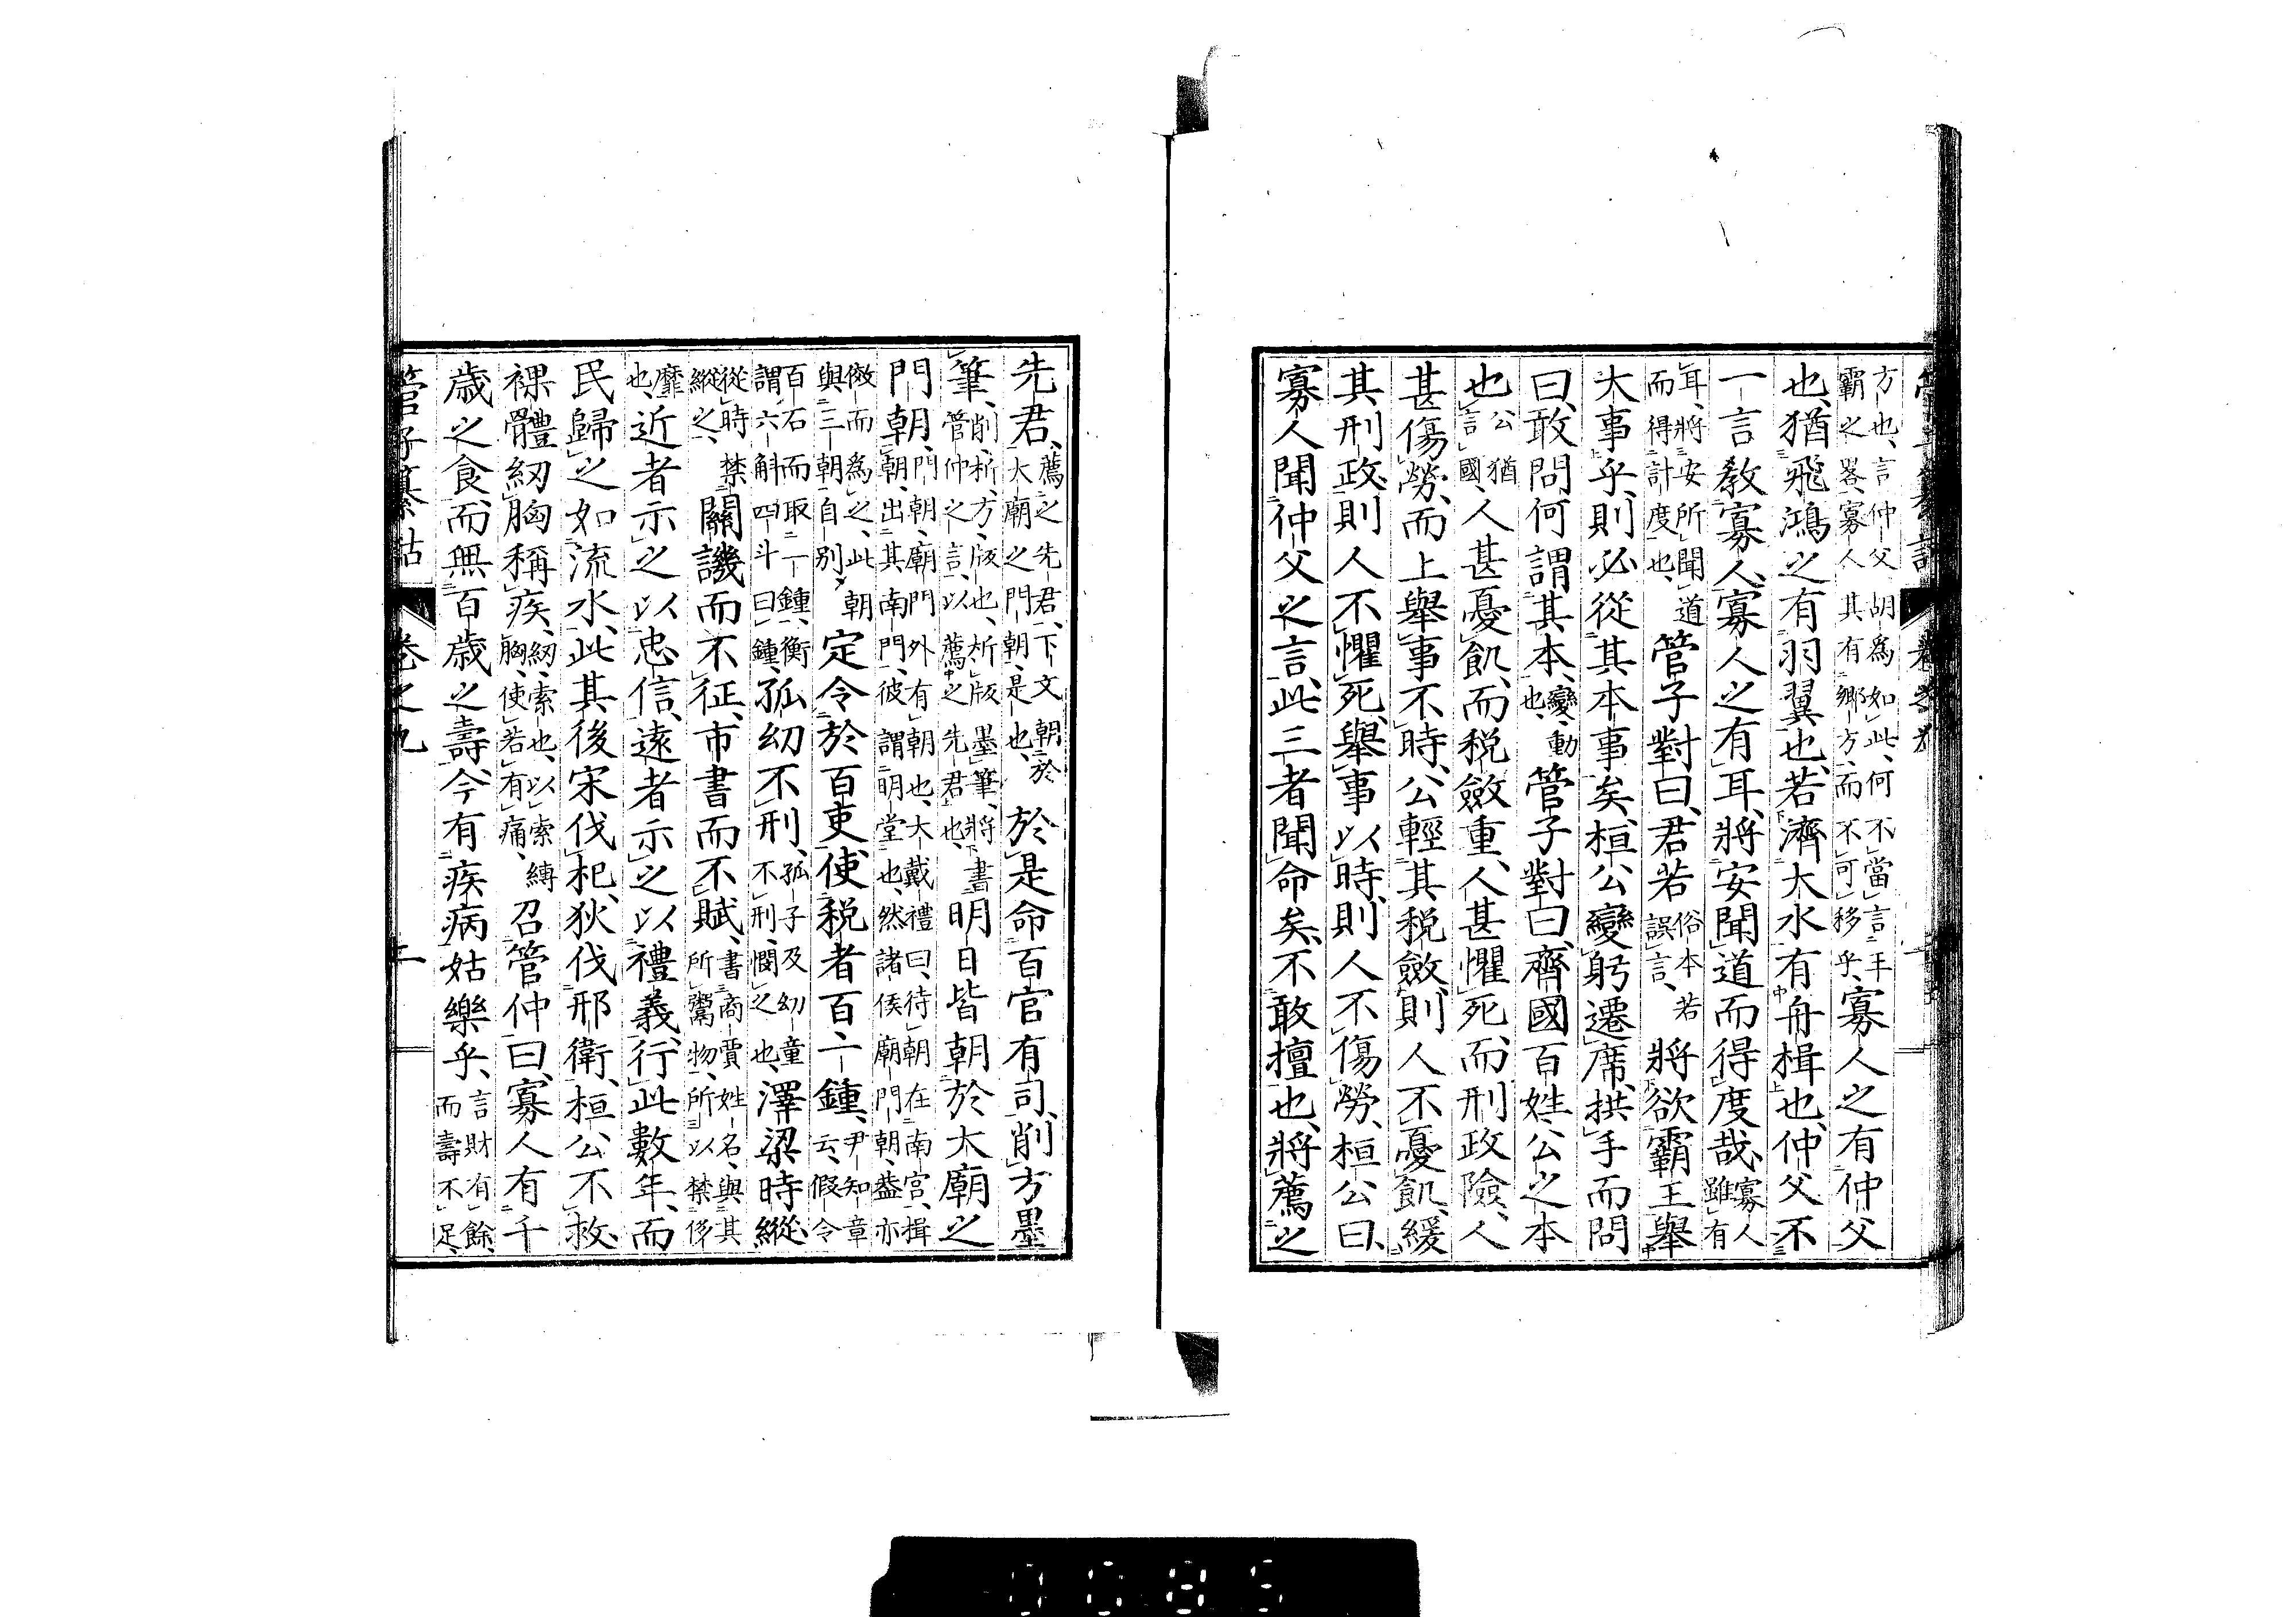 方也、言仲父胡爲如此、何不當言王
霸之畧、寡人其有鄉方、而不可移乎、
寡人之有仲父
也、猶飛鴻之有羽翼也、若濟大水有舟楫也、仲父不
一言教寡人、寡人之有耳、將安聞道而得度哉、
寡人
雖有
耳、將安所聞道
而得計度也、
管子對曰、君若
俗本若
誤言、
將欲霸王擧
大事乎、則必從其本事矣、桓公變躬遷席、拱手而問
曰、敢問何謂其本、
變、動
也、
管子對曰、齊國百姓、公之本
也、
公猶
言國、
人甚憂飢、而税斂重、人甚懼死、而刑政險、人
甚傷勞、而上擧事不時、公輕其税斂、則人不憂飢、緩
其刑政、則人不懼死、擧事以時、則人不傷勞、桓公曰、
寡人聞仲父之言、此三者聞命矣、不敢擅也、將薦之
先君、
薦之先君、下文朝於
大廟之門朝、是也、
於是命百官有司、削方墨
筆、
削、析、方、版也、析版墨筆、將書
管仲之言、以薦之先君也、
明日皆朝於大廟之
門朝、
門朝、廟門外有朝也、大戴禮曰、待朝在南宮、揖
朝、出其南門、彼謂明堂也、然諸侯廟門朝、蓋亦
倣而爲之、此朝
與三朝自別、
定令於百吏、使税者百一鍾、
尹知章
云、假令
百石而取一鍾、衡
謂六斛四斗曰鍾、
孤幼不刑、
孤子及幼童
不刑、憫之也、
澤梁時縱、
從時禁
縱之、
關譏而不征、市書而不賦、
書商賈姓名、與其
所鬻物、所以禁侈
靡
也、
近者示之以忠信、遠者示之以禮義、行此數年、而
民歸之如流水、此其後宋伐杞、狄伐邢衛、桓公不救、
裸體紉胸稱疾、
紉、索也、以索縛
胸、使若有痛、
召管仲曰、寡人有千
歳之食、而無百歳之壽、今有疾病、姑樂乎、
言財有餘、
而壽不足、
管子纂詁 卷之九 二